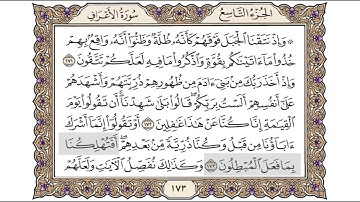 سُورَةُ الأَعْرَافِ الجُزْءُ التَّاسِعُ
۞ وَإِذ نَّتَقْنَا ٱلْجَبَلَ فَوْقَهُمْ كَأَنَّهُۥ ظُلَّةٌ وَظَنُّوٓا۟ أَنَّهُۥ وَاقِعٌۢ بِهِمْ
خُذُوا۟ مَآ ءَاتَيْنَـٰكُم بِقُوَّةٍ وَٱذْكُرُوا۟ مَا فِيهِ لَعَلَّكُمْ تَتَّقُونَ ١٧١
وَإِذْ أَخَذَ رَبُّكَ مِنۢ بَنِىٓ ءَادَمَ مِن ظُهُورِهِمْ ذُرِّيَّتَهُمْ وَأَشْهَدَهُمْ
عَلَىٰٓ أَنفُسِهِمْ أَلَسْتُ بِرَبِّكُمْ ۖ قَالُوا۟ بَلَىٰ ۛ شَهِدْنَآ ۛ أَن تَقُولُوا۟ يَوْمَ
ٱلْقِيَـٰمَةِ إِنَّا كُنَّا عَنْ هَـٰذَا غَـٰفِلِينَ ١٧٢ أَوْ تَقُولُوٓا۟ إِنَّمَآ أَشْرَكَ
ءَابَآؤُنَا مِن قَبْلُ وَكُنَّا ذُرِّيَّةً مِّنۢ بَعْدِهِمْ ۖ أَفَتُهْلِكُنَا
بِمَا فَعَلَ ٱلْمُبْطِلُونَ ١٧٣ وَكَذَٰلِكَ نُفَصِّلُ ٱلْـَٔايَـٰتِ وَلَعَلَّهُمْ
١٧٣